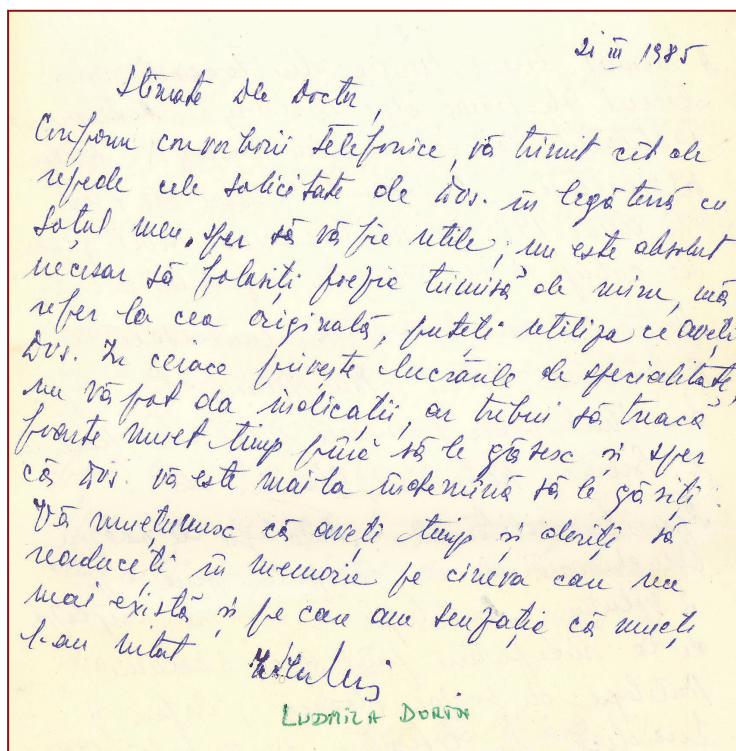 21 III 1985
Stimate Dle Doctor,
Conform convorbirii telefonice, vă trimit cît de
repede cele solicitate de Dvs. în legătură cu
soţul meu, sper să vă fie utile; nu este absolut
necesar să folosiţi poezia trimisă de mine, mă
refer la cea originală, puteţi utiliza ce aveţi
Dvs. În ceeace priveşte lucrările de specialitate,
nu vă pot da indicaţii, ar trebui să treacă
foarte mult timp pînă să le găsesc şi sper
că Dvs. vă este mai la îndemînă să le găsiţi.
Vă mulţumesc că aveţi timp şi doriţi să
readuceţi în memorie pe cineva care nu
mai există şi pe care am senzaţia că mulţi
l-au uitat
LUDMILA DORIN